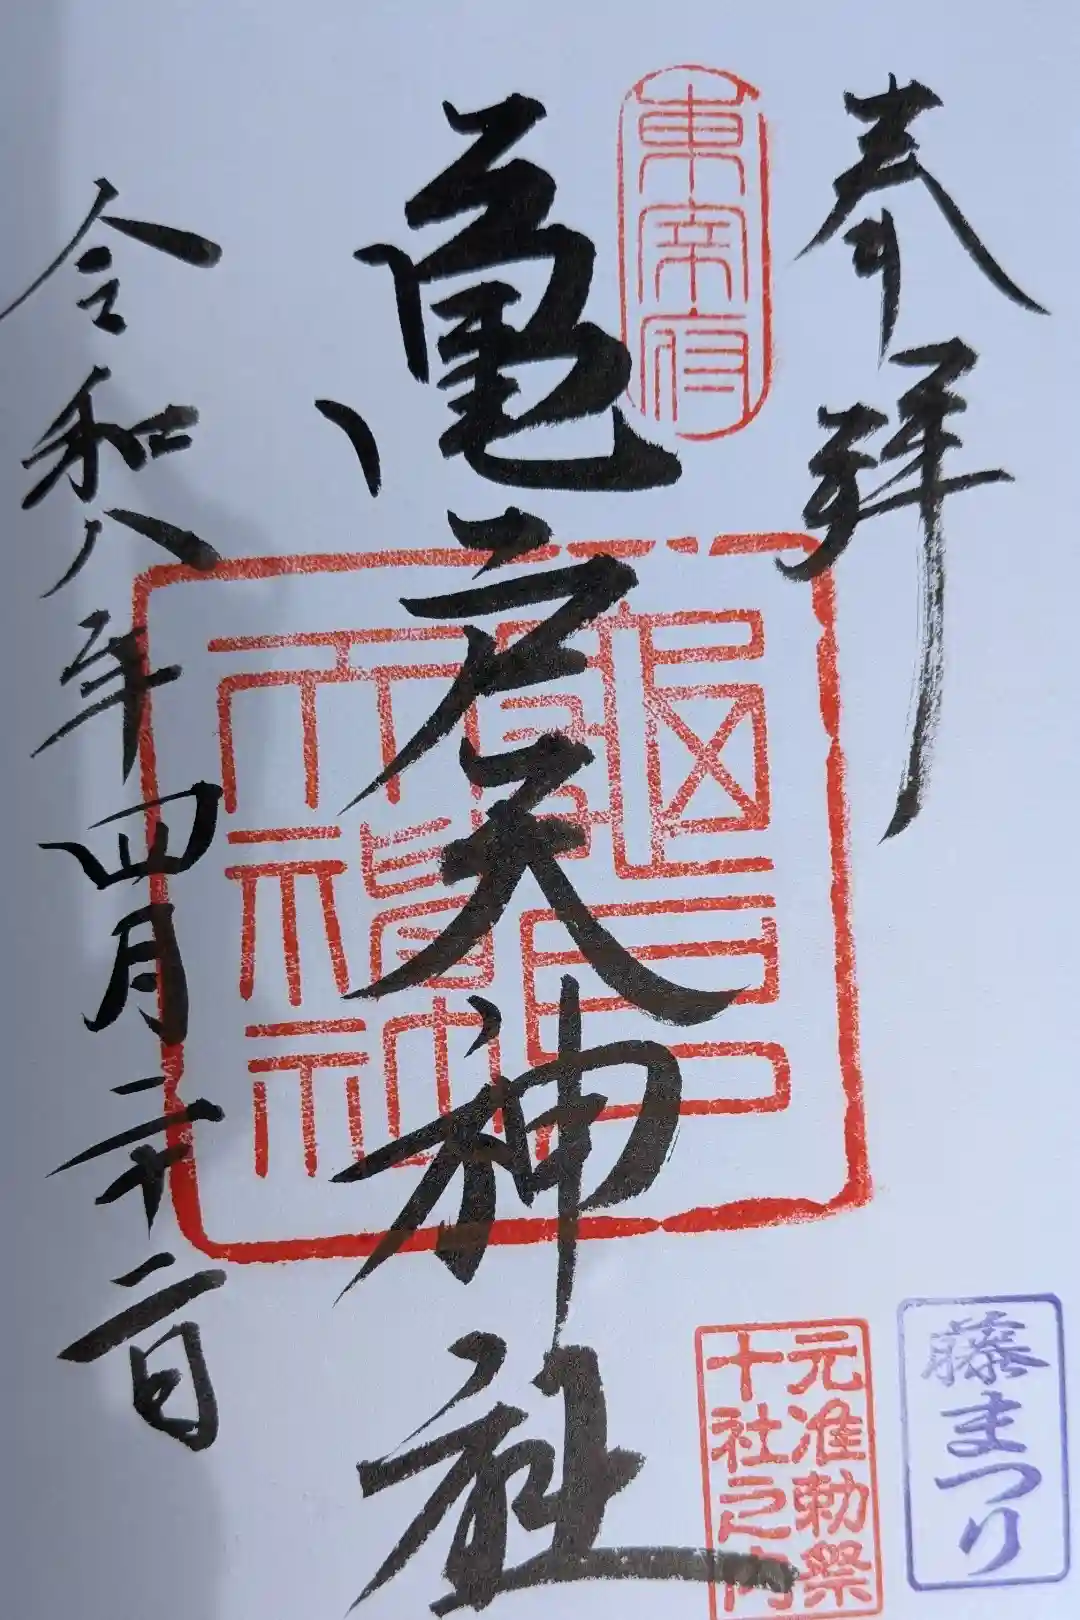 奉拝
東宰府
亀戸天神社
龜戸天満神社
令和八年四月二十二日
元准勅祭
十社之内
藤まつり